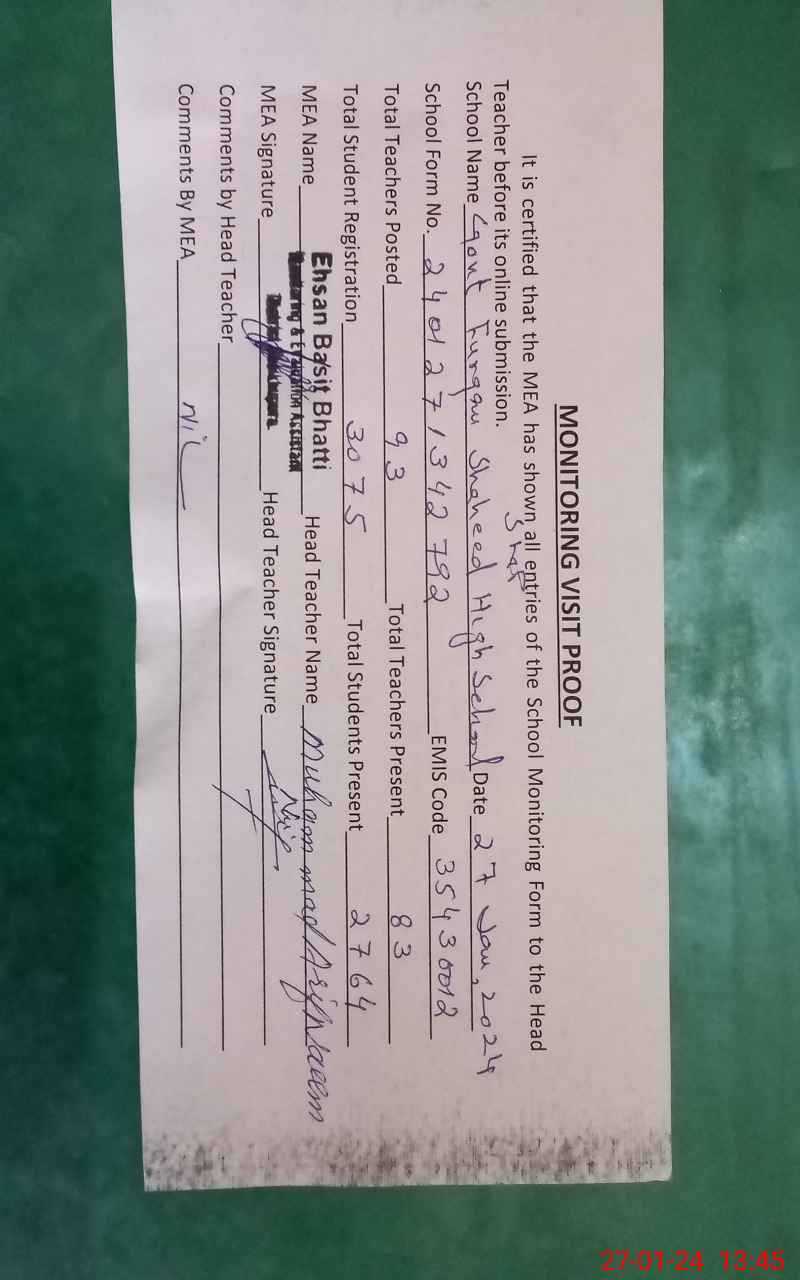 MONITORING VISIT PROOF
It is certified that the MEA has shown all entries of the School Monitoring Form to the Head
Teacher before its online submission.
School Name Govt Furqan Shaheed High School Date 27 Jan, 2024
School Form No. 2401271342792 EMIS Code 35430012
Total Teachers Posted 93 Total Teachers Present 83
Total Student Registration 3075 Total Students Present 2764
MEA Name Ehsan Basit Bhatti Head Teacher Name Muhammad Arif Naeem
Monitoring & Evaluation Assistant
MEA Signature Head Teacher Signature
Comments by Head Teacher Nil
Comments By MEA Nil
27-01-24 13:45